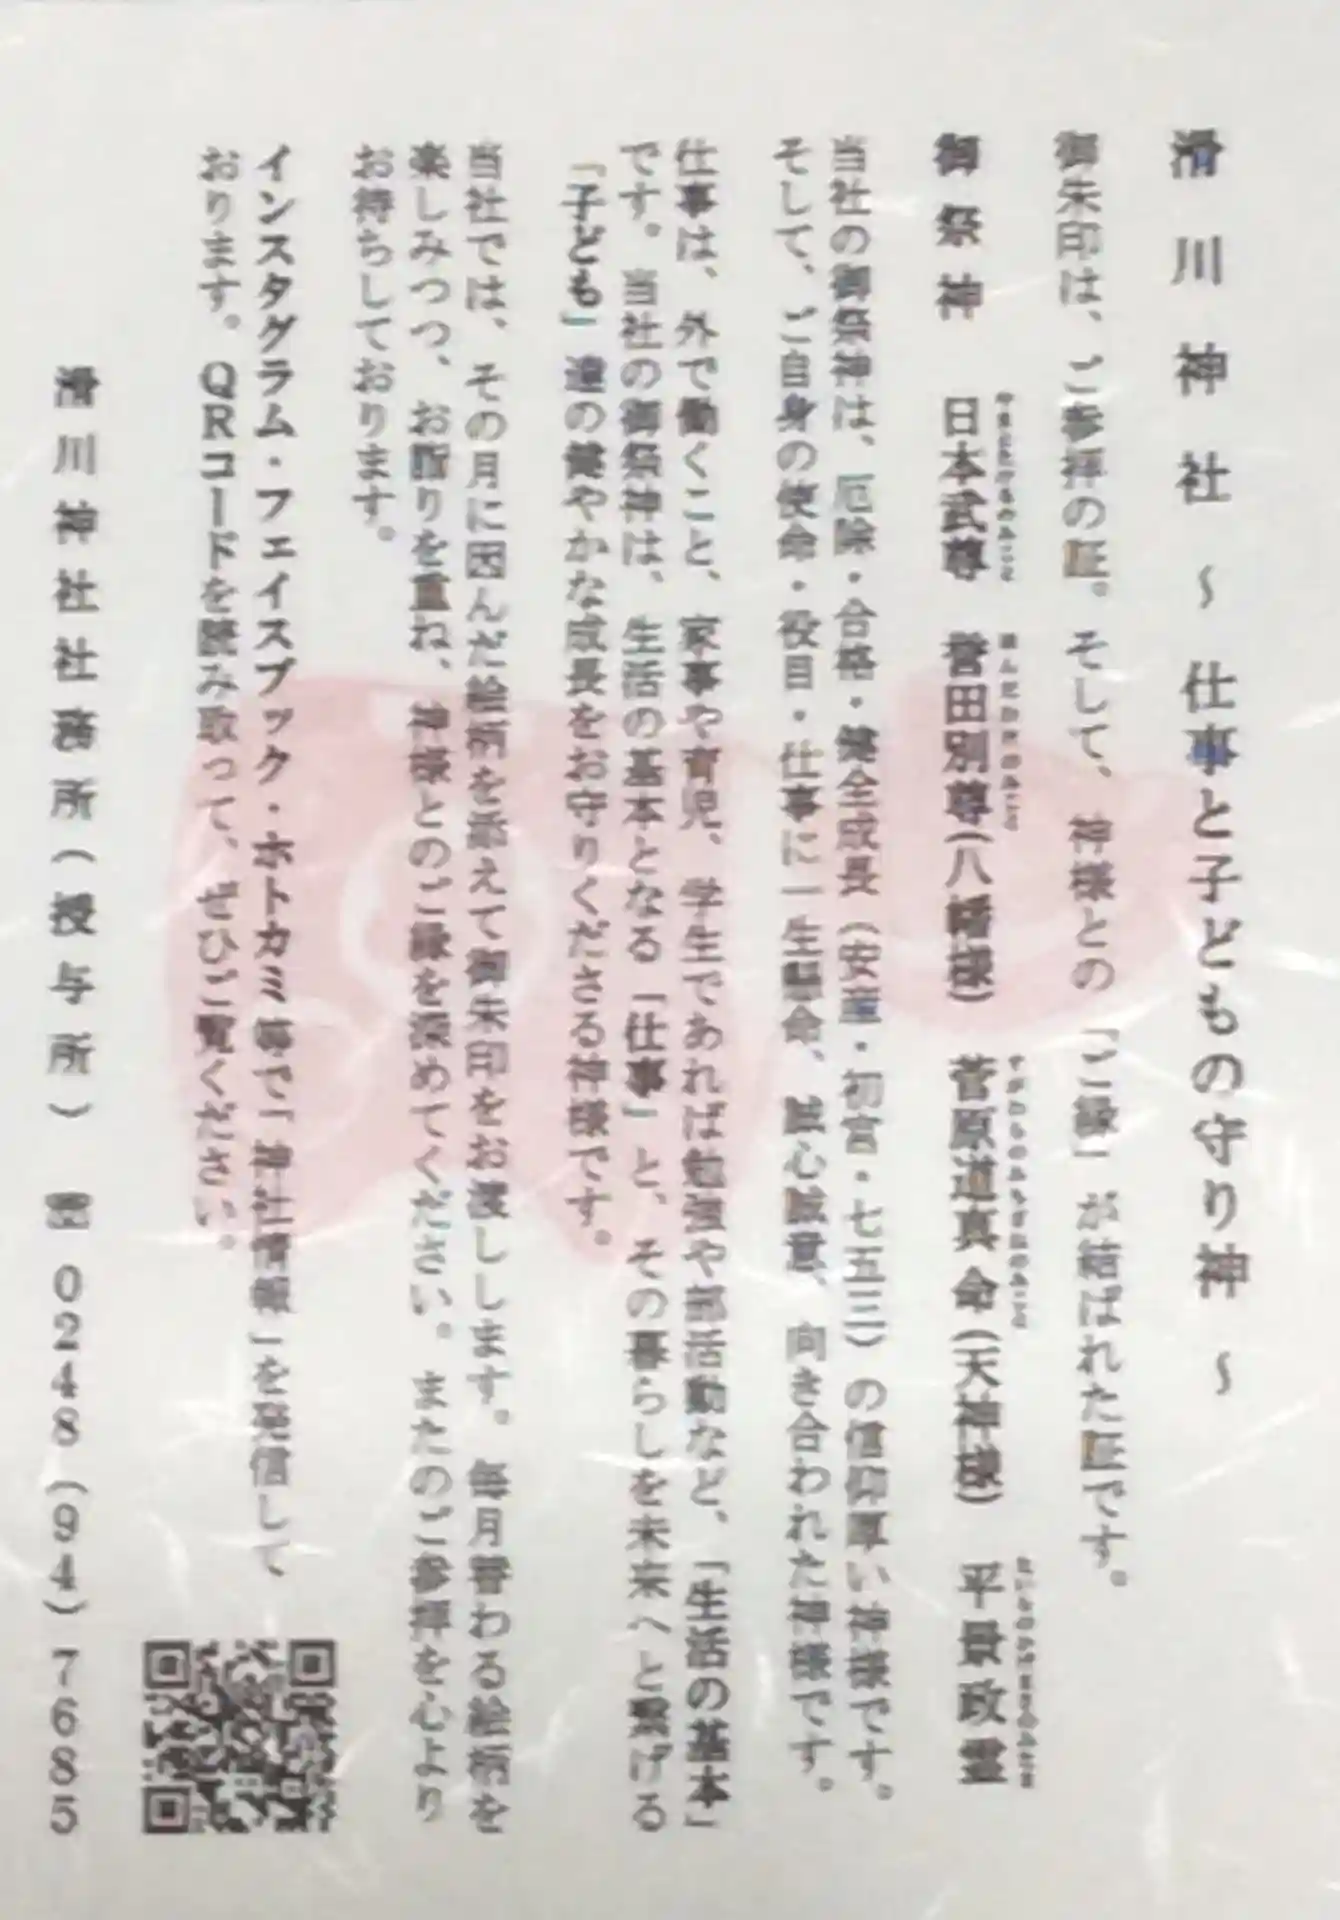 滑川神社 ~ 仕事と子どもの守り神 ~
御朱印は、ご参拝の証。そして、神様との「ご縁」が結ばれた証です。
御祭神 日本武尊 誉田別尊(八幡様) 菅原道真命(天神様) 平景政霊
当社の御祭神は、厄除・合格・健全成長(安産・初宮・七五三)の信仰厚い神様です。
そして、ご自身の使命・役目・仕事に一生懸命、誠心誠意、向き合われた神様です。
仕事は、外で働くこと、家事や育児、学生であれば勉強や部活動など、「生活の基本」
です。当社の御祭神は、生活の基本となる「仕事」と、その暮らしを未来へと繋げる
「子ども」達の健やかな成長をお守りくださる神様です。
当社では、その月に因んだ絵柄を添えて御朱印をお渡しします。毎月替わる絵柄を
楽しみつつ、お詣りを重ね、神様とのご縁を深めてください。またのご参拝を心より
お待ちしております。
インスタグラム・フェイスブック・ホトカミ等で「神社情報」を発信して
おります。QRコードを読み取って、ぜひご覧ください。
滑川神社社務所(授与所) ☎ 0248(94)7685